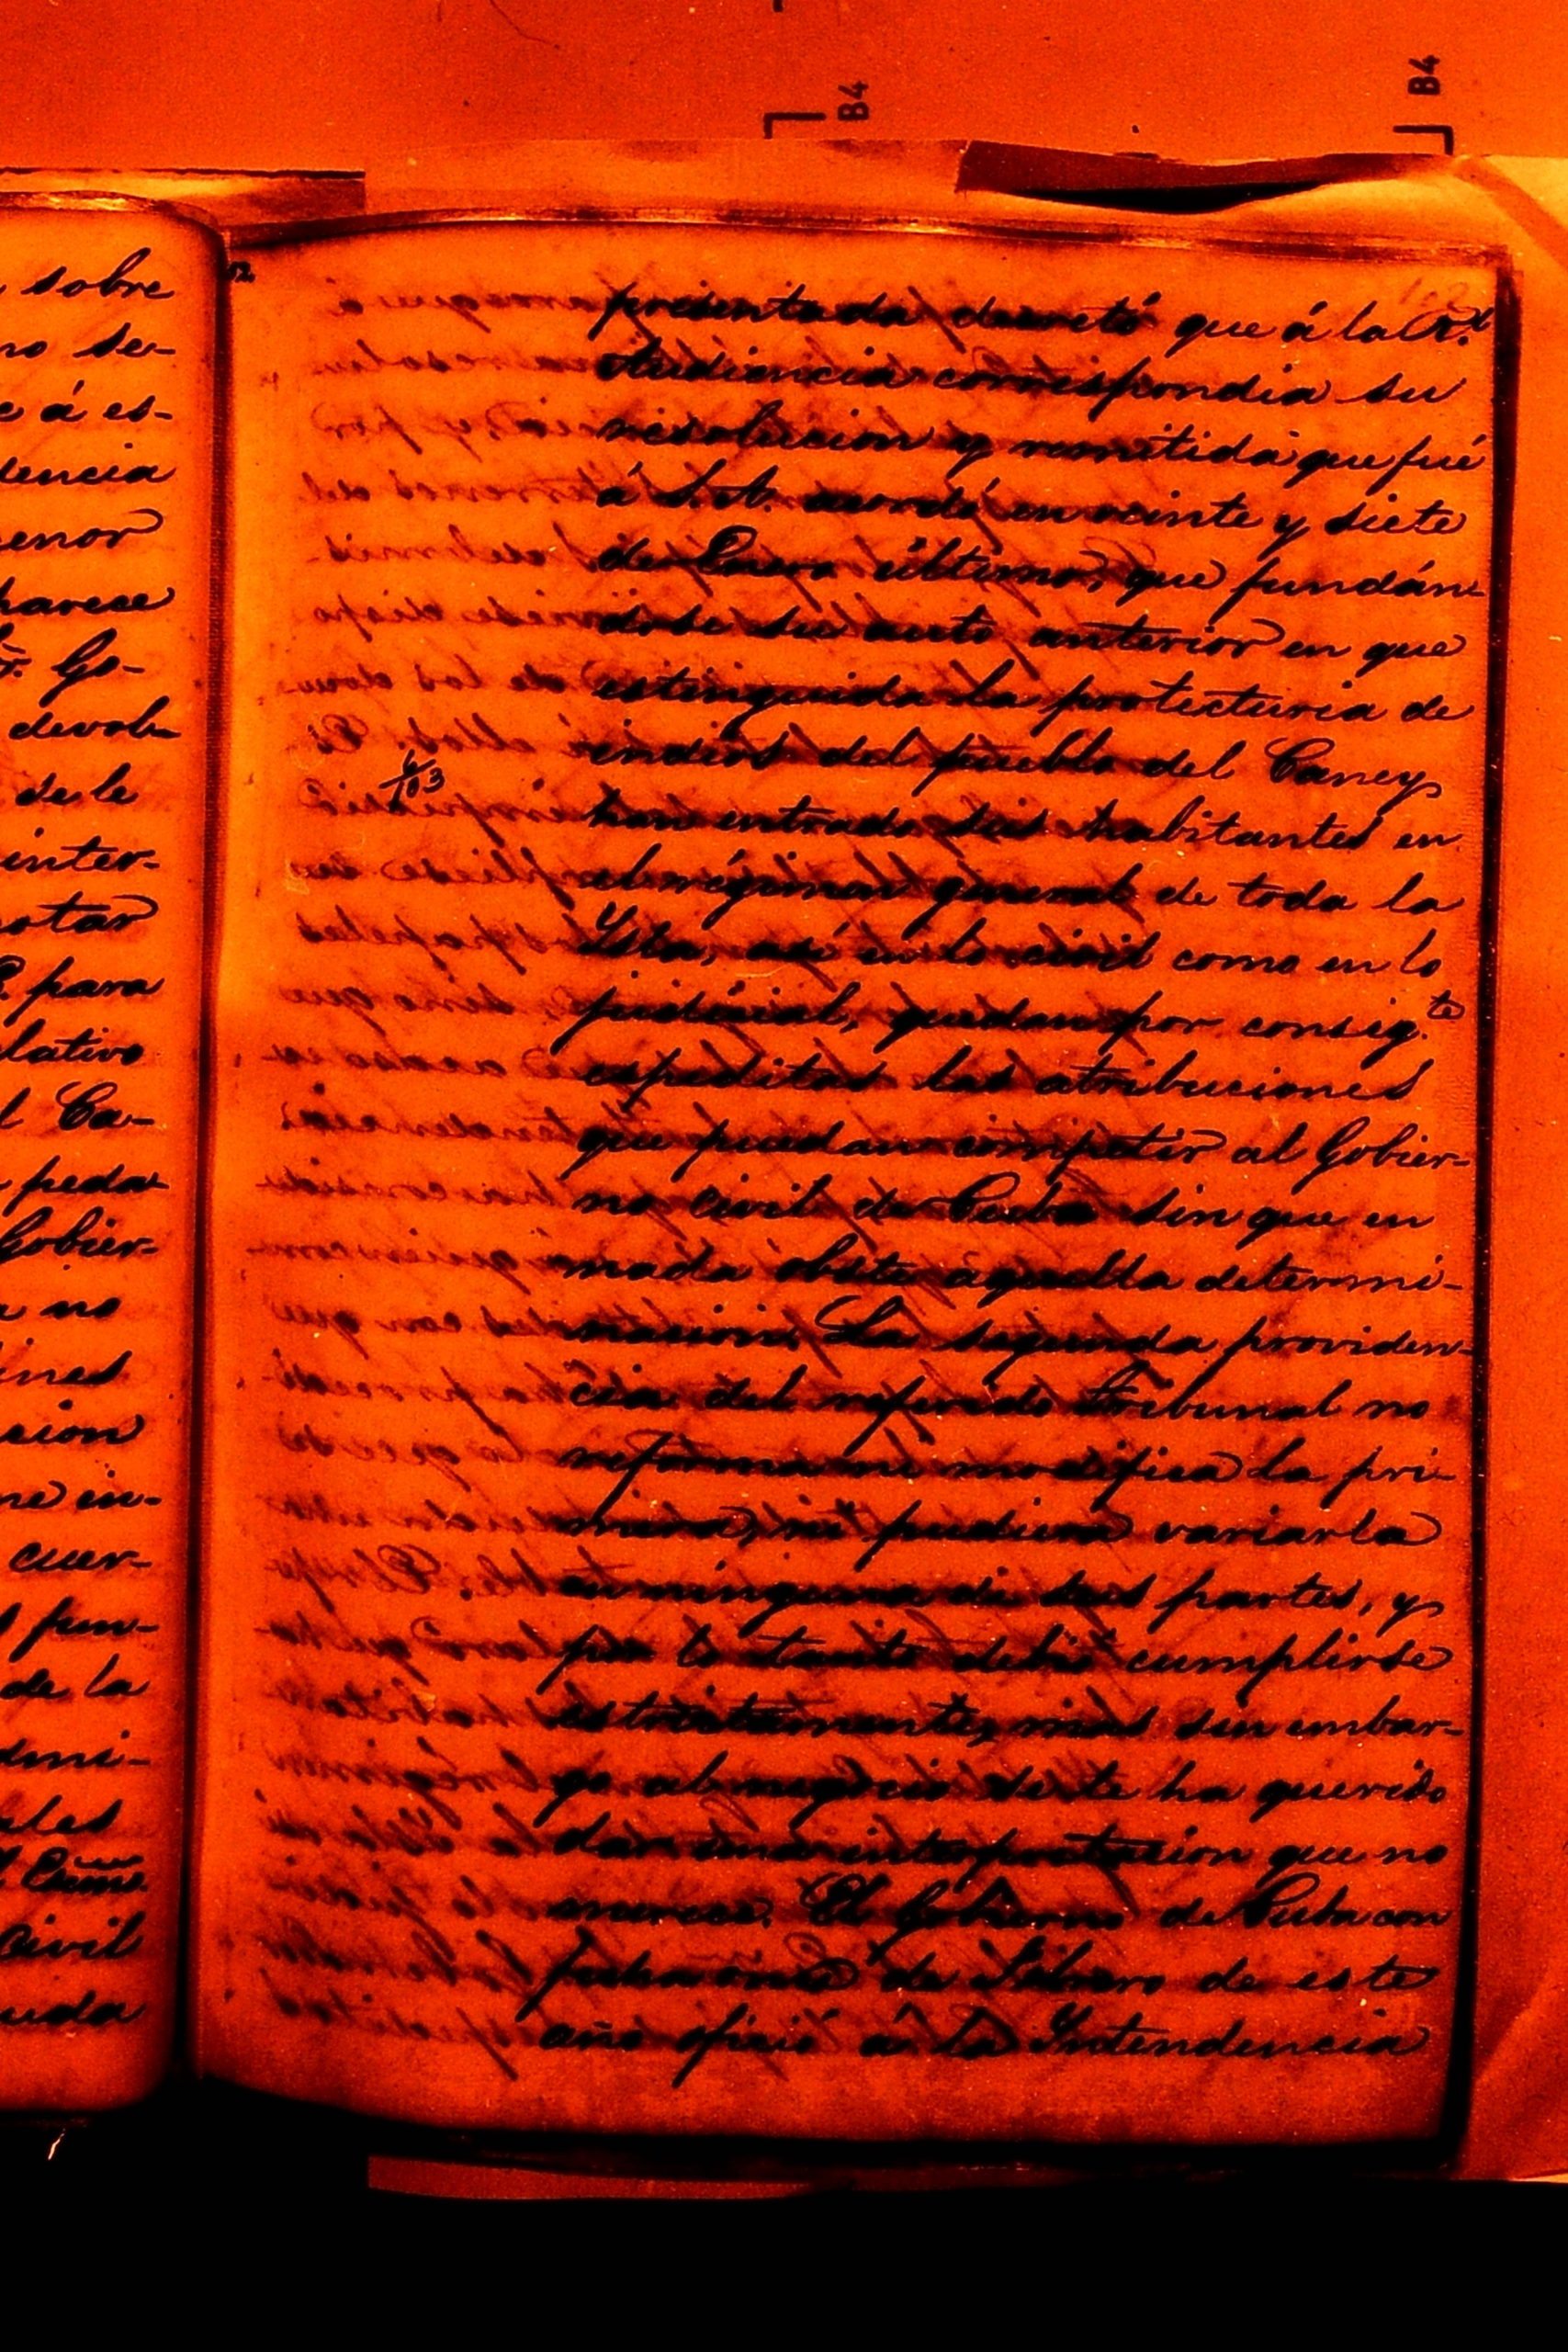 B4
B4
sobre
no se-
e á es-
dencia
enor
parece
r. Go-
devol-
se le
inter-
otar
E. para
lativo
l Ca-
peda-
Gobier-
no
ines
sion
ne in-
cuer-
fun-
de la
dmi-
ales
Exmo.
Civil
uda
102
presentada decretó que á la Rl.
Audiencia correspondia su
resolucion y remitida que fué
á S.A. acordó en veinte y siete
de Enero último, que fundán-
dose su auto anterior en que
estinguida la protecturia de
indios del pueblo del Caney
6/103
han entrado sus habitantes en
el régimen general de toda la
Ysla, asi en lo civil como en lo
judicial, quedan por consig.te
espeditas las atribuciones
que puedan competir al Gobier-
no civil de Cuba sin que en
nada obste aquella determi-
nacion. La segunda providen-
cia del referido Tribunal no
reforma ni modifica la pri-
mera, ni pudiera variarla
en ninguna de sus partes, y
por lo tanto debió cumplirse
estrictamente, mas sin embar-
go al negocio se le ha querido
dar una interpretacion que no
merece. El Gobierno de Cuba con
fecha once de Febrero de este
año ofició á la Yntendencia